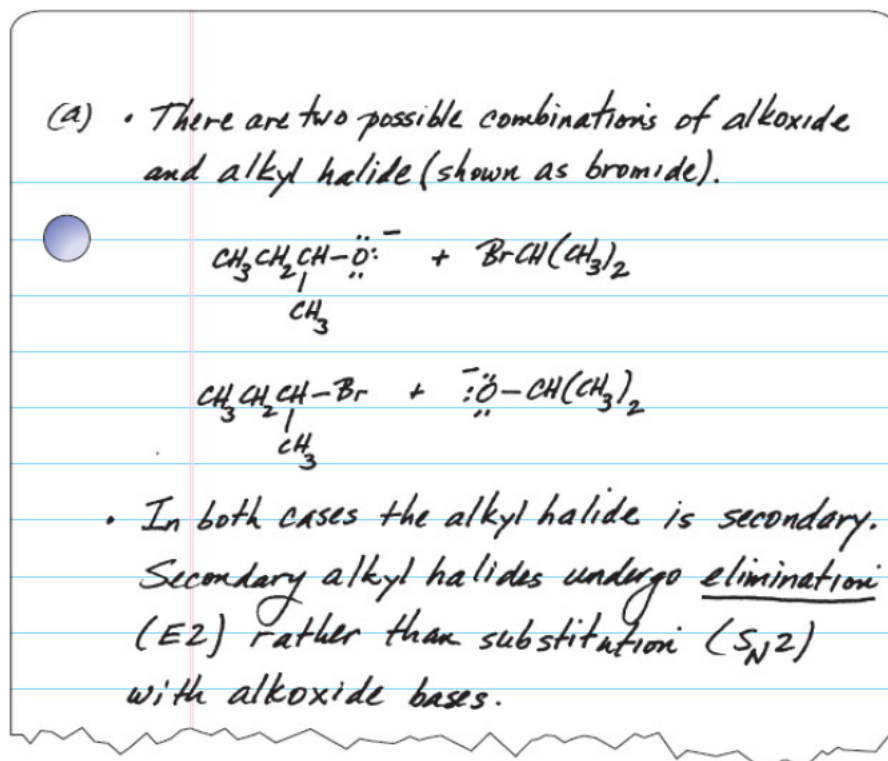 (a) • There are two possible combinations of alkoxide
and alkyl halide (shown as bromide).
CH₃CH₂CH–Ö:⁻ + BrCH(CH₃)₂
CH₃
CH₃CH₂CH–Br + ⁻:Ö–CH(CH₃)₂
CH₃
• In both cases the alkyl halide is secondary.
Secondary alkyl halides undergo elimination
(E2) rather than substitution (SN2)
with alkoxide bases.